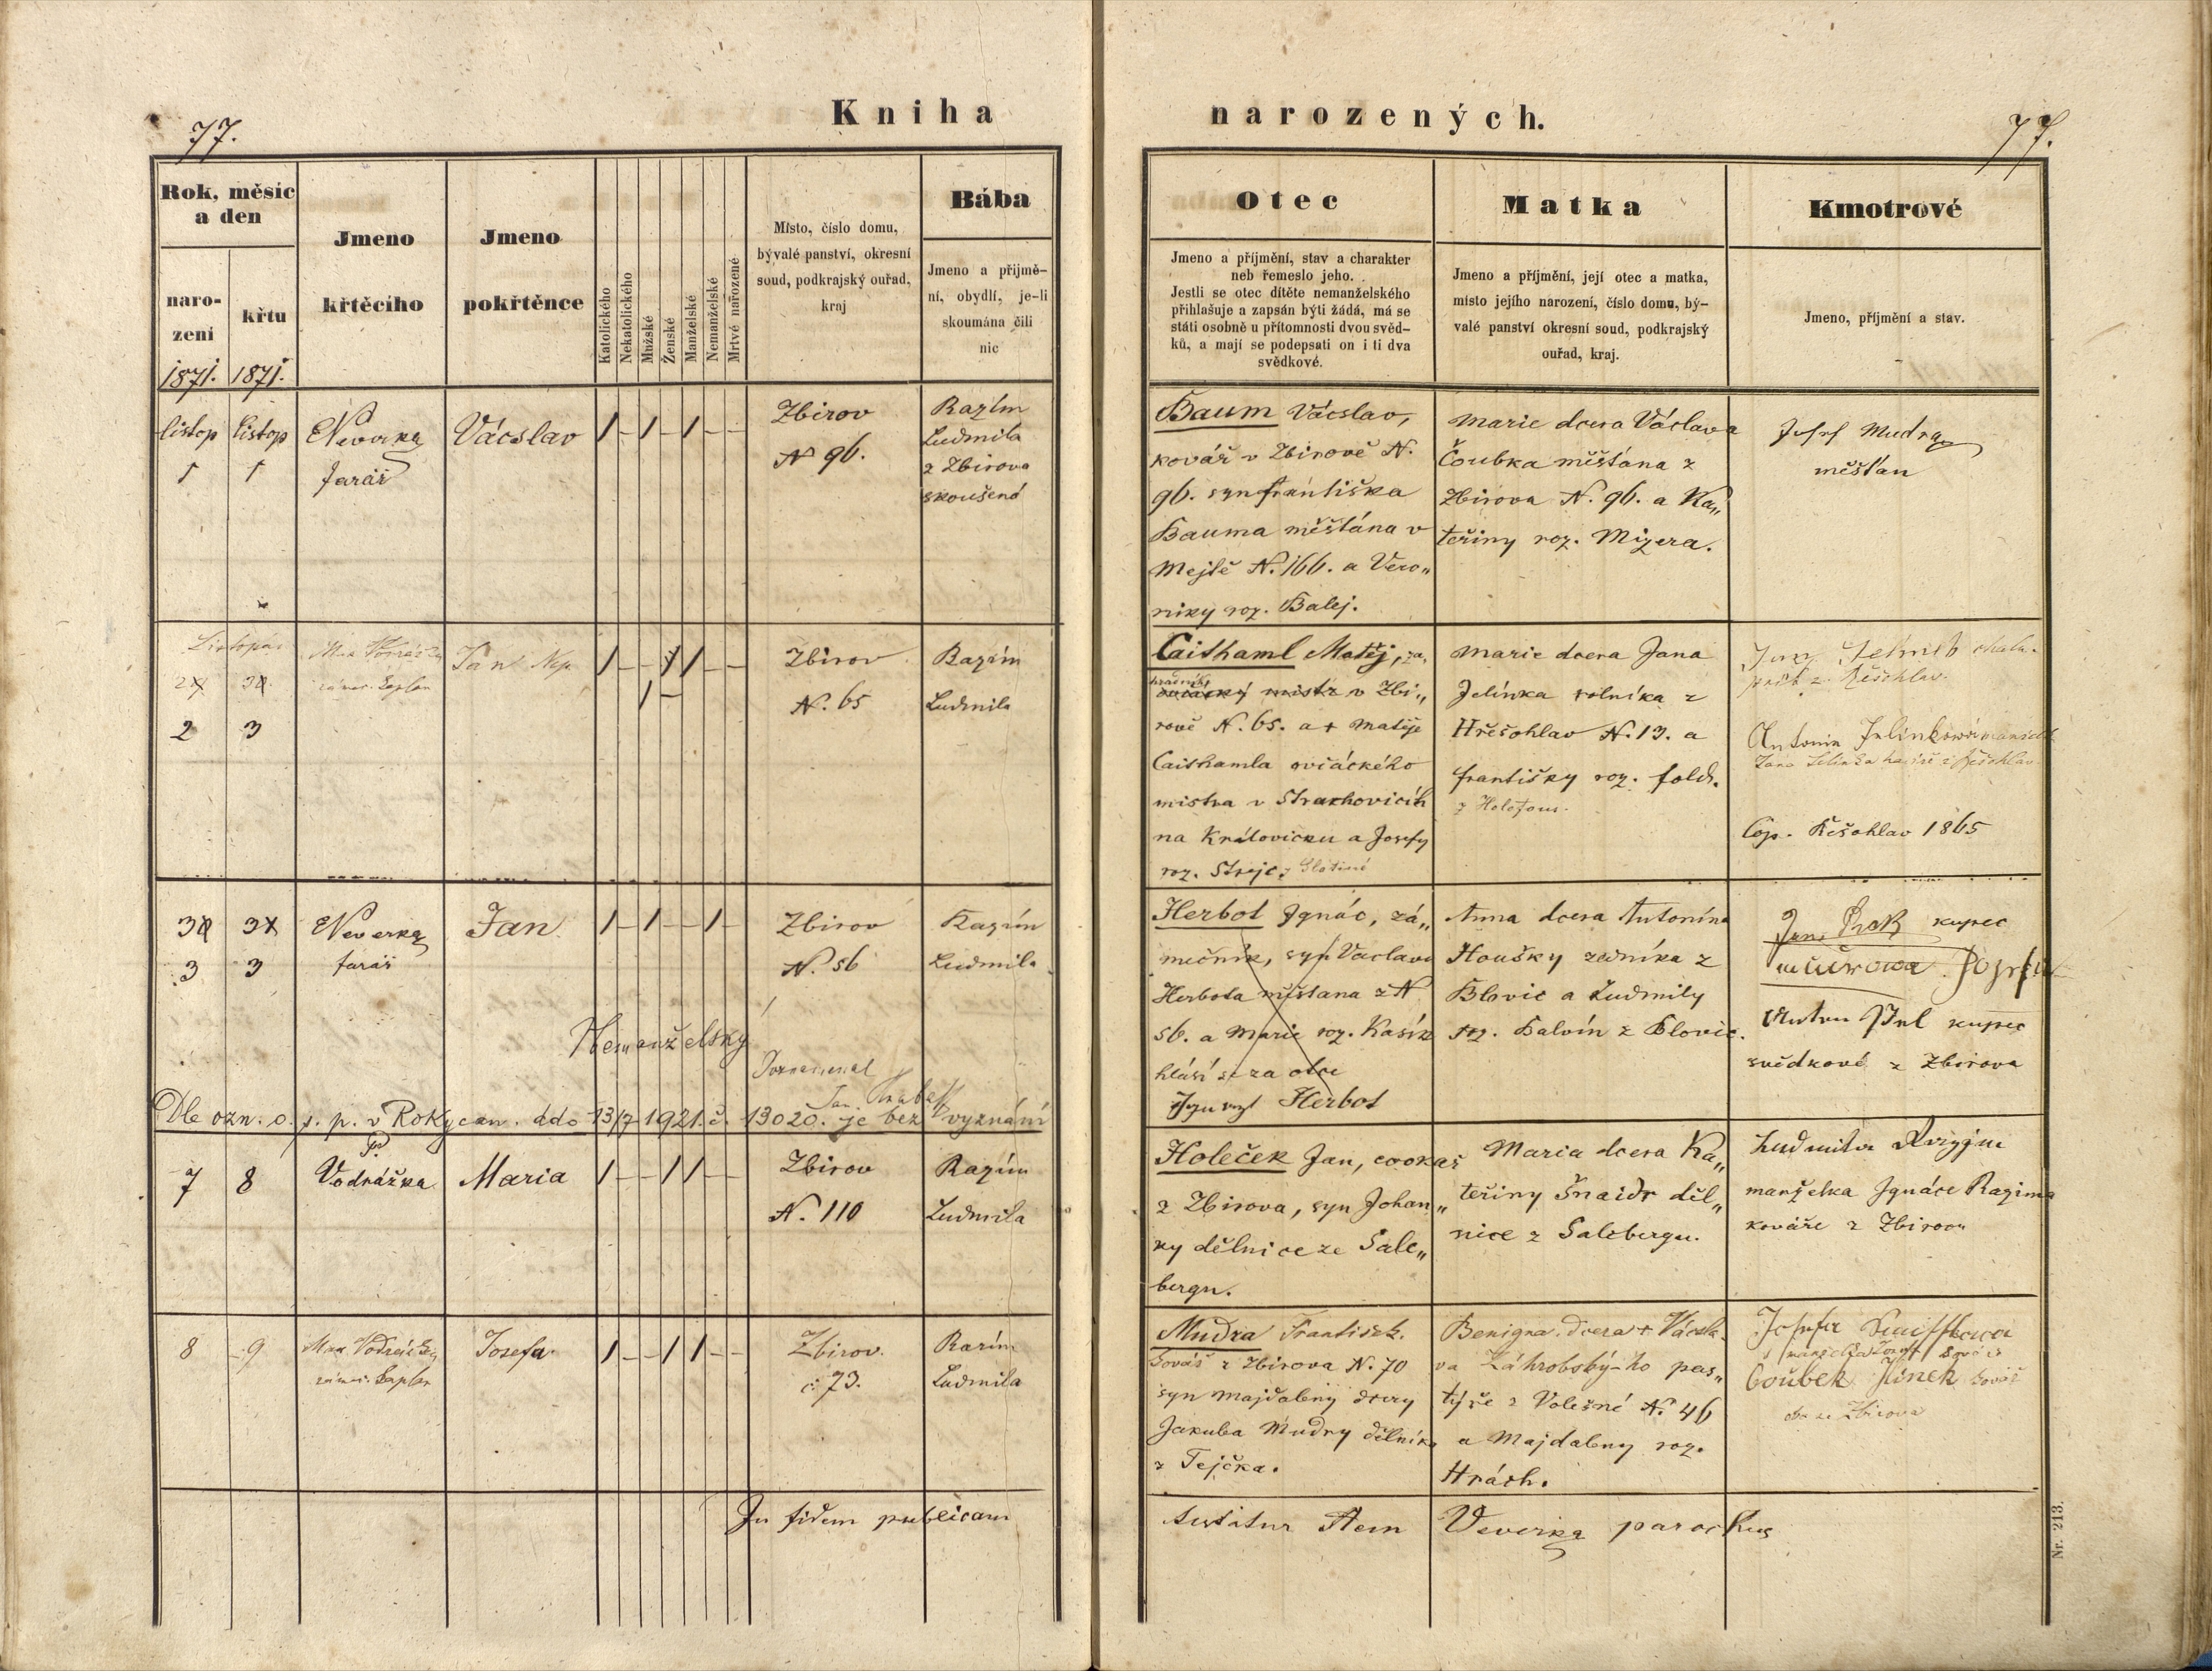 Kniha narozených.
77.
77.
Rok, měsíc a den
narození
křtu
Jmeno křtěcího
Jmeno pokřtěnce
Katolického
Nekatolického
Mužské
Ženské
Manželské
Nemanželské
Mrtvé nařozené
Místo, číslo domu,
bývalé panství, okresní
soud, podkrajský ouřad,
kraj
Bába
Jmeno a přijmě-
ní, obydlí, je-li
skoumána čili
nic
Otec
Jmeno a příjmění, stav a charakter
neb řemeslo jeho.
Jestli se otec dítěte nemanželského
přihlašuje a zapsán býti žádá, má se
státi osobně u přítomnosti dvou svěd-
ků, a mají se podepsati on i ti dva
svědkové.
Matka
Jmeno a příjmění, její otec a matka,
místo jejího narození, číslo domu, bý-
valé panství okresní soud, podkrajský
ouřad, kraj.
Kmotrové
Jmeno, příjmění a stav.
1871. 1871.
listop listop
1 1
Veverka
farář
Vácslav
Zbirov
N 96.
Razím
Ludmila
z Zbirova
skoušená
Baum Vácslav,
kovář v Zbirově N.
96. syn Františka
Bauma měšťána v
Mejtě N. 166. a Vero„
niky roz. Balej.
Marie dcera Václava
Čoubka měšťána z
Zbirova N. 96. a Ka„
teřiny roz. Mizera.
Josef Mudra
měšťan
Listopad
2 3
Max Vodrážka
zámec. kaplan
Jan Nep.
Zbirov
N. 65
Razím
Ludmila
Caithaml Matěj, za„
hradník
ovčácký mistr v Zbi„
rově N. 65. a + Matěje
Caithamla ovčáckého
mistra v Strachovicích
na Královicku a Josefy
roz. Strejc z
Marie dcera Jana
Jelínka rolníka z
Hřešohlav N. 13. a
Františky roz. Fold.
z
Antonie Jelínková manželk
Jana Jelínka z Řešohlav
Cop. Řešohlav 1865
3 3
Veverka
farář
Jan
Zbirov
N. 56
Razím
Ludmila
Nemanželský
Poznamenal
Jan
Dle ozn. o. s. p. v Rokycan. ddo 13/7 1921. č. 13020. je bez vyznání
Herbot Ignác, zá„
mečník, syn Vaclava
Herbota měšťana z N
56. a Marie roz. Kasík
hlásí se za otce
Ignazt Herbot
Anna dcera Antonína
Houšky zedníka z
Blovic a Ludmily
roz. Balvín z Blovic.
Jan kupec
kupec
svědkové z Zbirova
7 8
Vodrážka
Maria
Zbirov
N. 110
Razím
Ludmila
Holeček Jan, cvokař
z Zbirova, syn Johan„
ky dělnice ze Salc„
bergu.
Maria dcera Ka„
teřiny Šnaidr děl„
nice z Salcbergu.
Ludmila Razyma
manželka Ignáce Razima
kováře z Zbirova
8 9
Max Vodrážka
zámec. kaplan
Josefa
Zbirov.
č: 73.
Razím
Ludmila
Mudra František.
kovář z Zbirova N. 70
syn Majdaleny dcery
Jakuba Mudry dělníka
z Tejčka.
Benigna. dcera + Vácsla-
va Záhrobský-ho pas„
týře z Volešné N. 46
a Majdaleny roz.
Hrách.
Josefa
Čoubek Hinek kovář
oba ze Zbirova
In fidem publicam
testatur Item Veverka parochus
Nr. 213.